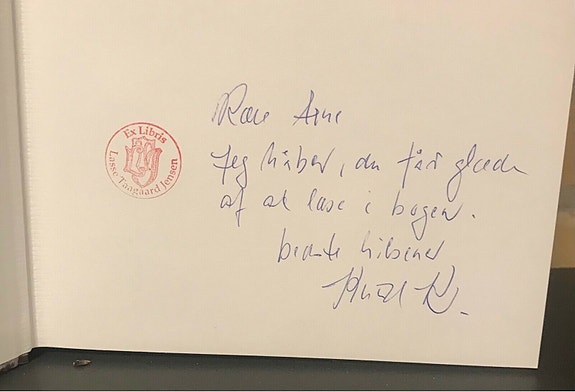 Ex Libris
Lasse Taagaard Jensen
Kære Arne
Jeg håber, du får glæde
af at læse i bogen.
bedste hilsener